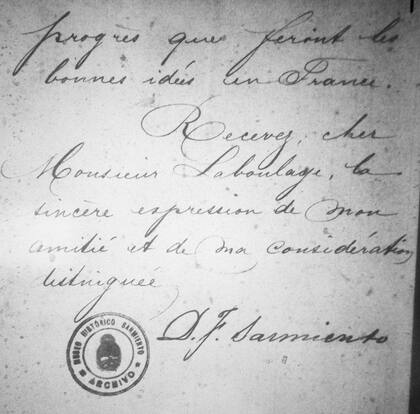 progrès que feront les
bonnes idées en France.
Recevez, cher
Monsieur Laboulaye, la
sincère expression de mon
amitié et de ma considération
distinguée
D. F. Sarmiento
MUSEO HISTÓRICO SARMIENTO
ARCHIVO